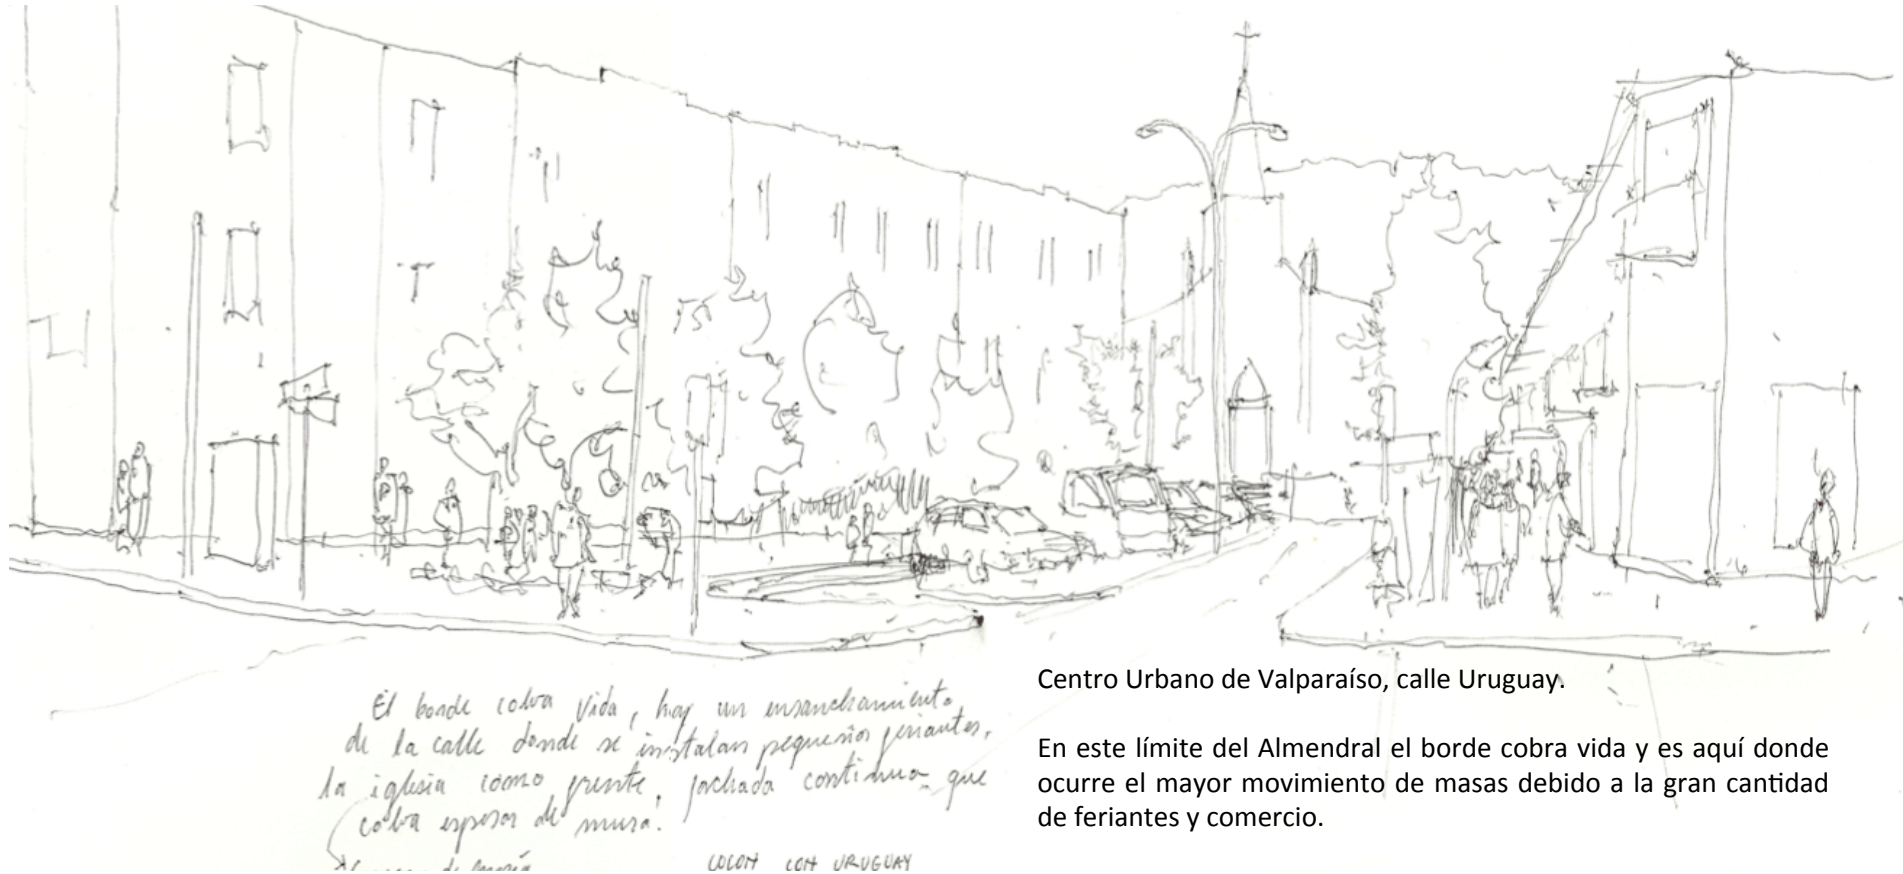 El borde cobra vida, hay un ensanchamiento
de la calle donde se instalan pequeños feriantes,
la iglesia como frente, fachada continua que
cobra espesor de muro!
de maría
COLON CON URUGUAY
Centro Urbano de Valparaíso, calle Uruguay.
En este límite del Almendral el borde cobra vida y es aquí donde
ocurre el mayor movimiento de masas debido a la gran cantidad
de feriantes y comercio.